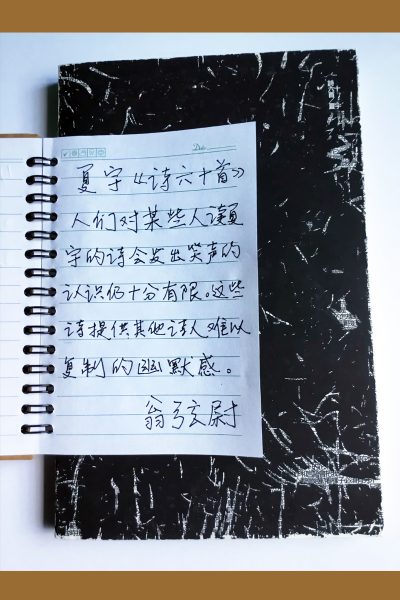 Date
夏宇《诗六十首》
人们对某些人读夏
宇的诗会发出笑声的
认识仍十分有限。这些
诗提供其他诗人难以
复制的幽默感。
翁弦尉